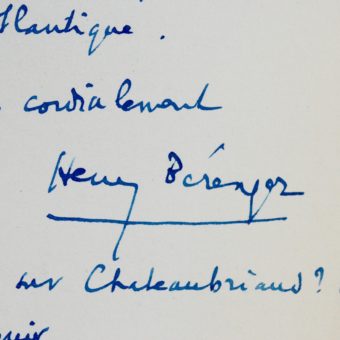 Atlantique.
cordialement
Henry Bérenger
sur Chateaubriand?